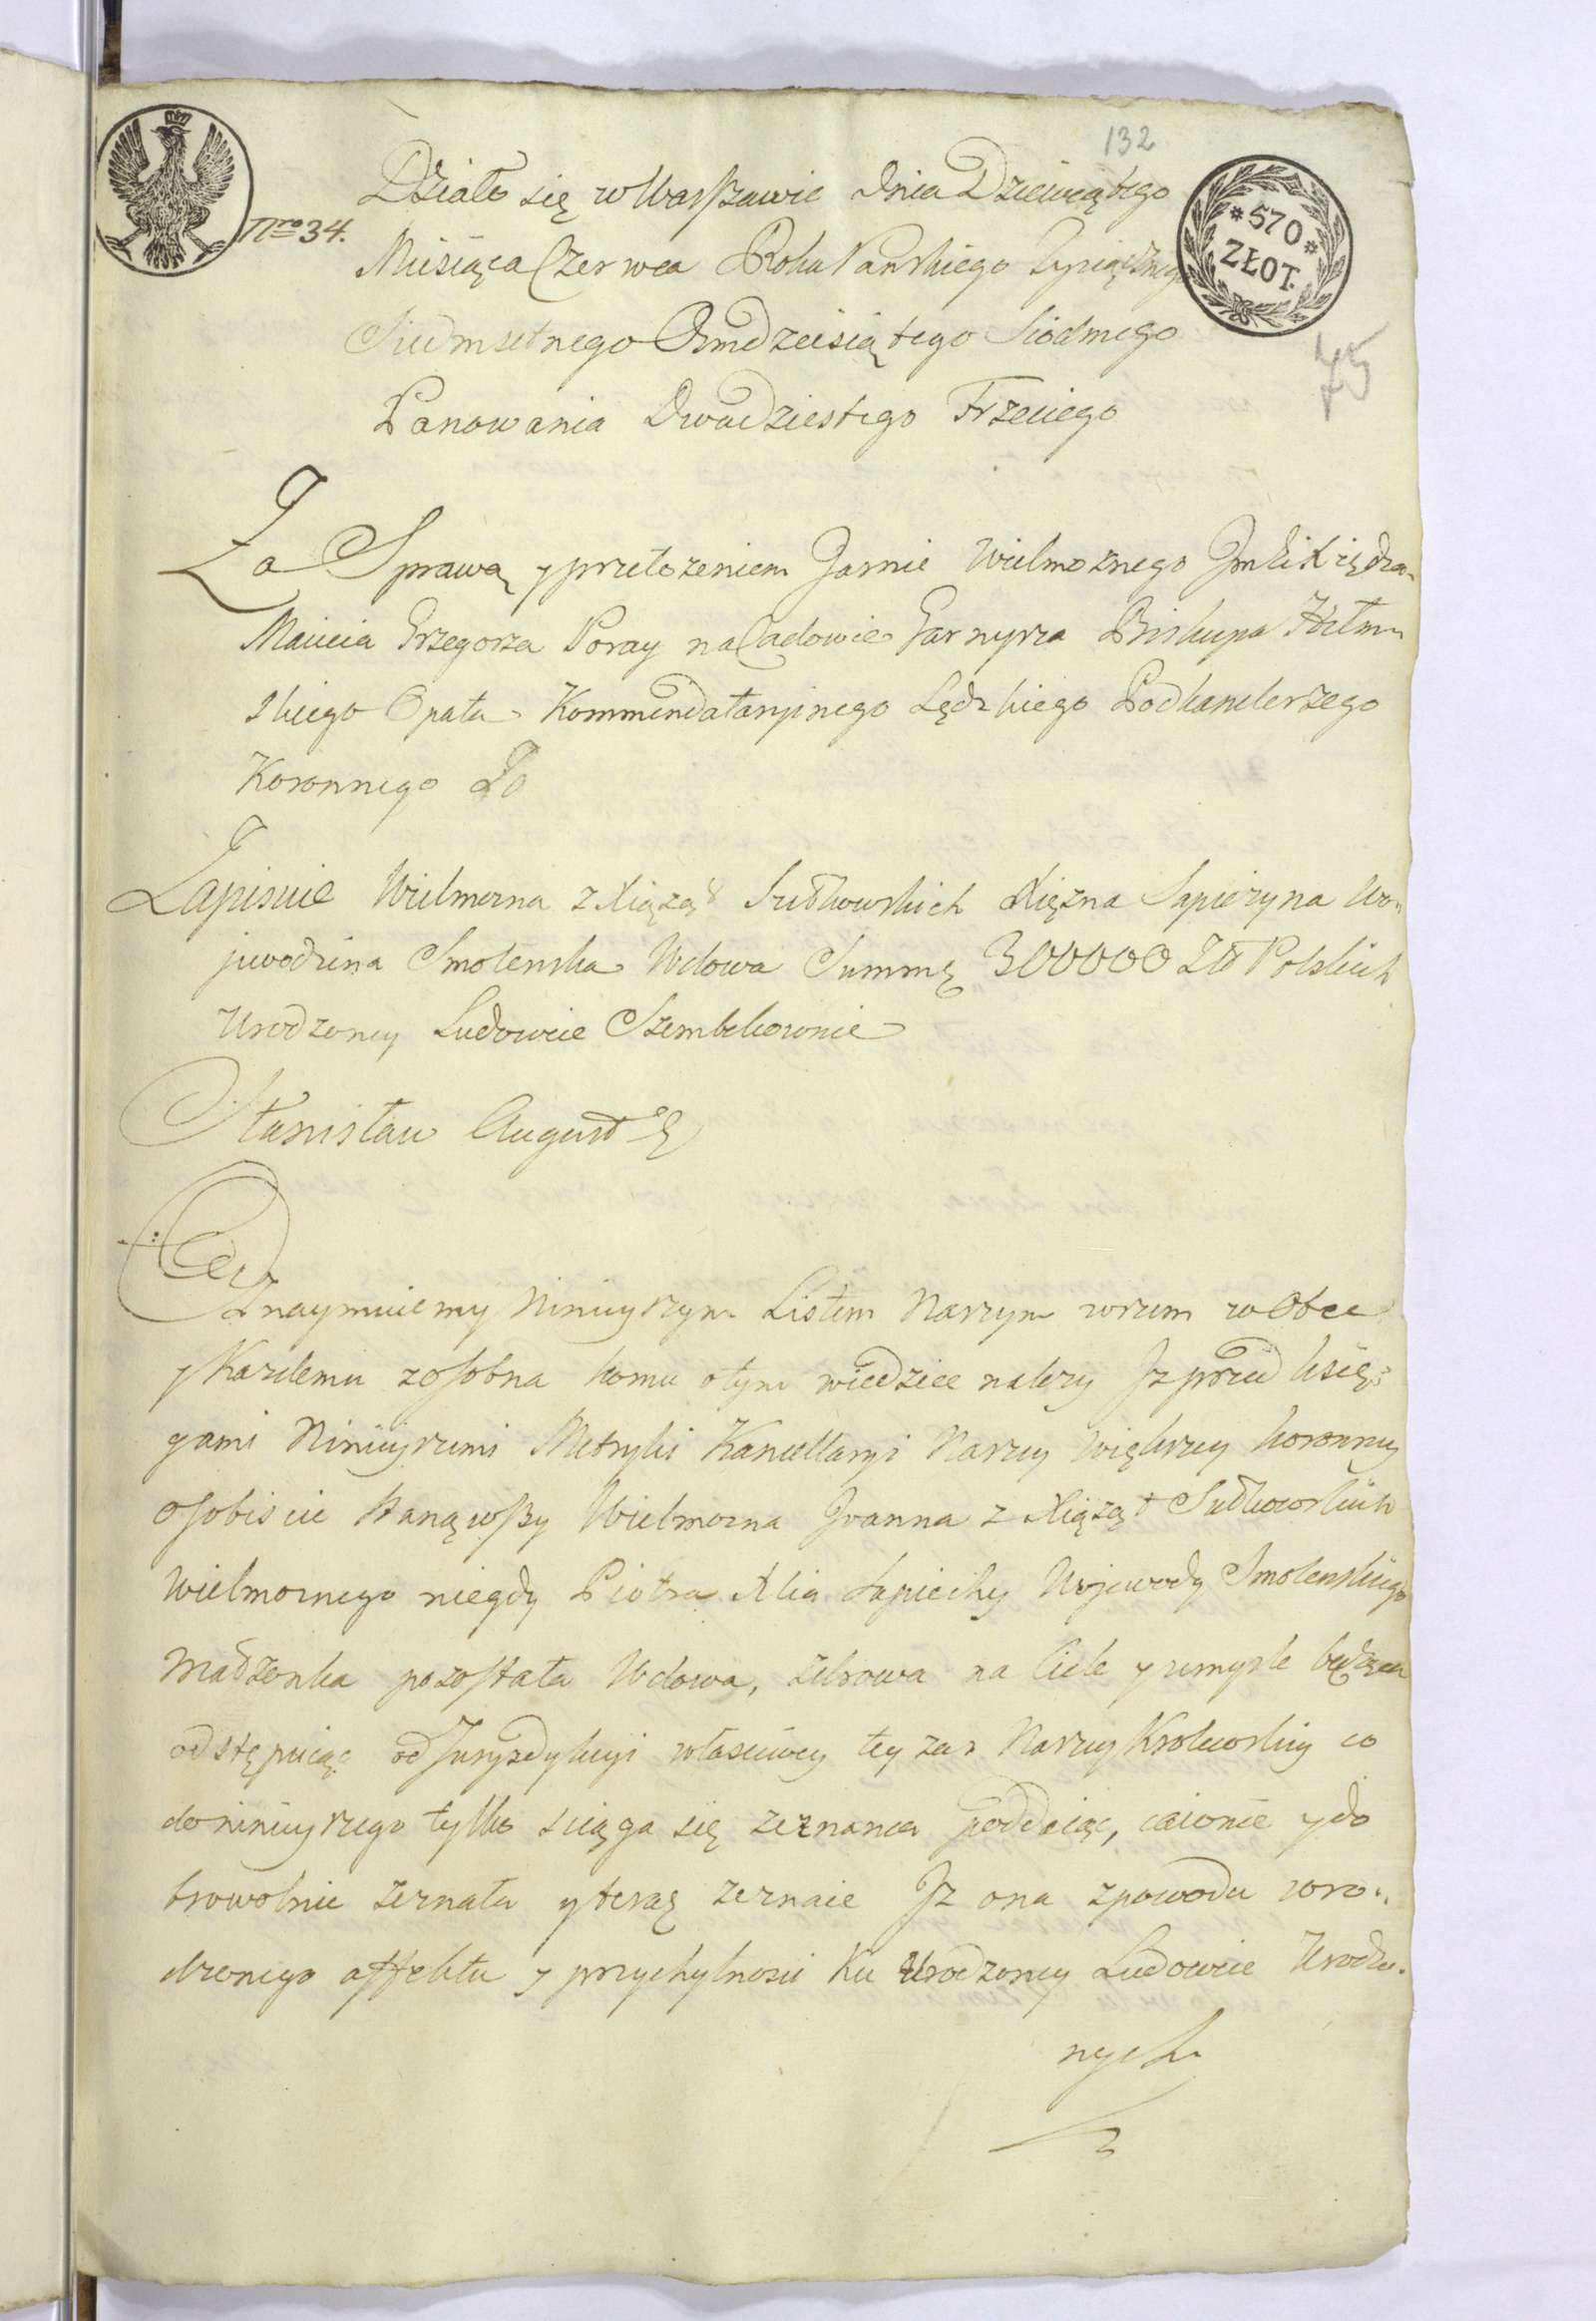 132
Działo się w Warszawie dnia Dziewiątego
Nro 34.
*570*
ZŁOT.
Miesiąca Czerwca Roku Pańskiego Tysiącznego
Siedmsetnego Osmdziesiątego Siódmego
75
Panowania Dwudziestego Trzeciego
Za Sprawą y przełożeniem Jaśnie Wielmożnego Jmći Xiędza
Macieia Grzegorza Poray na Garnysza Biskupa Hełm„
skiego Opata Kommendataryjnego Lędzkiego Podkanclerzego
Koronnego
Zapisuie Wielmożna z Xiążąt Sułkowskich Xiężna Sapieżyna Wo„
jewodzina Smoleńska Wdowa Summę 300000 Zł Polskich
Urodzoney Ludowice Szembekownie
Stanisław August
Oznaymuiemy Ninieyszym Listem Naszym wszem w Obec
y Każdemu zosobna komu o tym wiedziec należy Jż przed księ„
gami Ninieyszemi Metryki Kancellaryi Naszey większey koronney
osobiście stanąwszy Wielmożna Joanna z Xiążąt Sułkowskich
Wielmożnego niegdy Piotra Xcia Sapiehy Wojewody Smoleńskiego
Małżonka pozostała Wdowa, zdrowa na Ciele y umyśle będąca
odstępuiąc od Juryzdykcyi własciwey tey zaś Naszey Krolewskiey co
do ninieyszego tylko sciąga się zeznania poddaiąc, iawnie y do
browolnie zeznała y teraz zeznaie Jż ona zpowodu wro„
dzonego affektu y przychylnosci ku Urodzoney Ludowice Urodzo„
nych